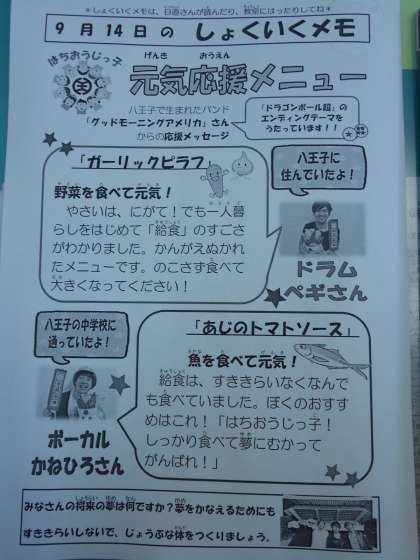 *しょくいくメモは、日直さんが読んだり、教室にはったりしてね*
9月14日の しょくいくメモ
はちおうじっ子
げんき おうえん
元気応援メニュー
八王子で生まれたバンド
「グッドモーニングアメリカ」さん
からの応援メッセージ
「ドラゴンボール超」の
エンディングテーマを
うたっています！！
「ガーリックピラフ」
野菜を食べて元気！
やさいは、にがて！でも一人暮
らしをはじめて「給食」のすごさ
がわかりました。かんがえぬかれ
たメニューです。のこさず食べて
大きくなってください！
八王子に
住んでいたよ！
ドラム
ペギさん
八王子の中学校に
通っていたよ！
ボーカル
かねひろさん
「あじのトマトソース」
魚を食べて元気！
給食は、すききらいなくなんで
も食べていました。ぼくのおすす
めはこれ！「はちおうじっ子！
しっかり食べて夢にむかって
がんばれ！」
みなさんの将来の夢は何ですか？夢をかなえるためにも
すききらいしないで、じょうぶな体をつくりましょう。